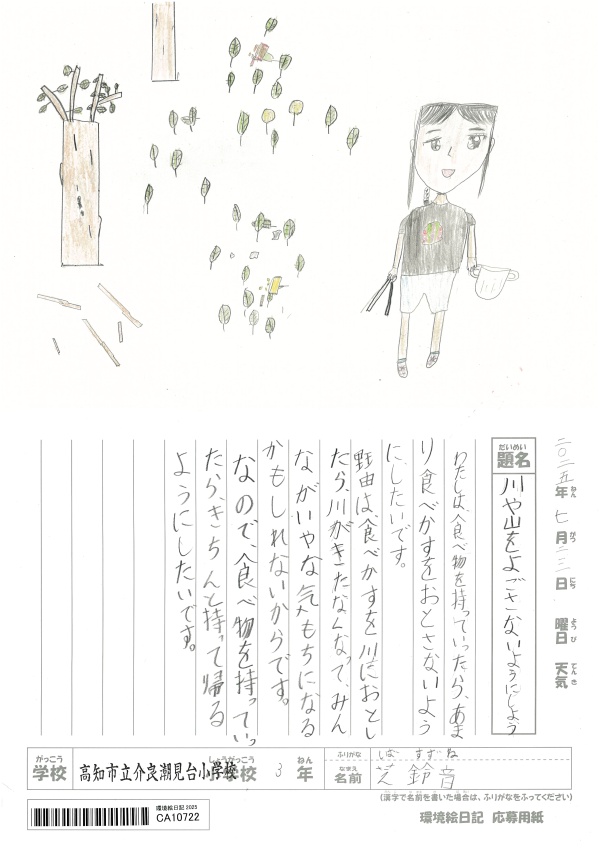 二〇二五年ねん 七月がつ 二三日にち 曜日ようび 天気てんき
だいめい
題名 川や山をよごさないようにしよう
わたしは、食べ物を持っていったら、あま
り食べかすをおとさないよう
にしたいです。
理由は、食べかすを川におとし
たら、川がきたなくなって、みん
ながいやな気もちになる
かもしれないからです。
なので、食べ物を持っていっ
たら、きちんと持って帰る
ようにしたいです。
がっこう しょうがっこう ねん ふりがな しば すずね
学校 高知市立介良潮見台小学校 3年 なまえ 名前 芝 鈴音
(漢字で名前を書いた場合は、ふりがなをふってください)
環境絵日記 2025
CA10722
環境絵日記 応募用紙